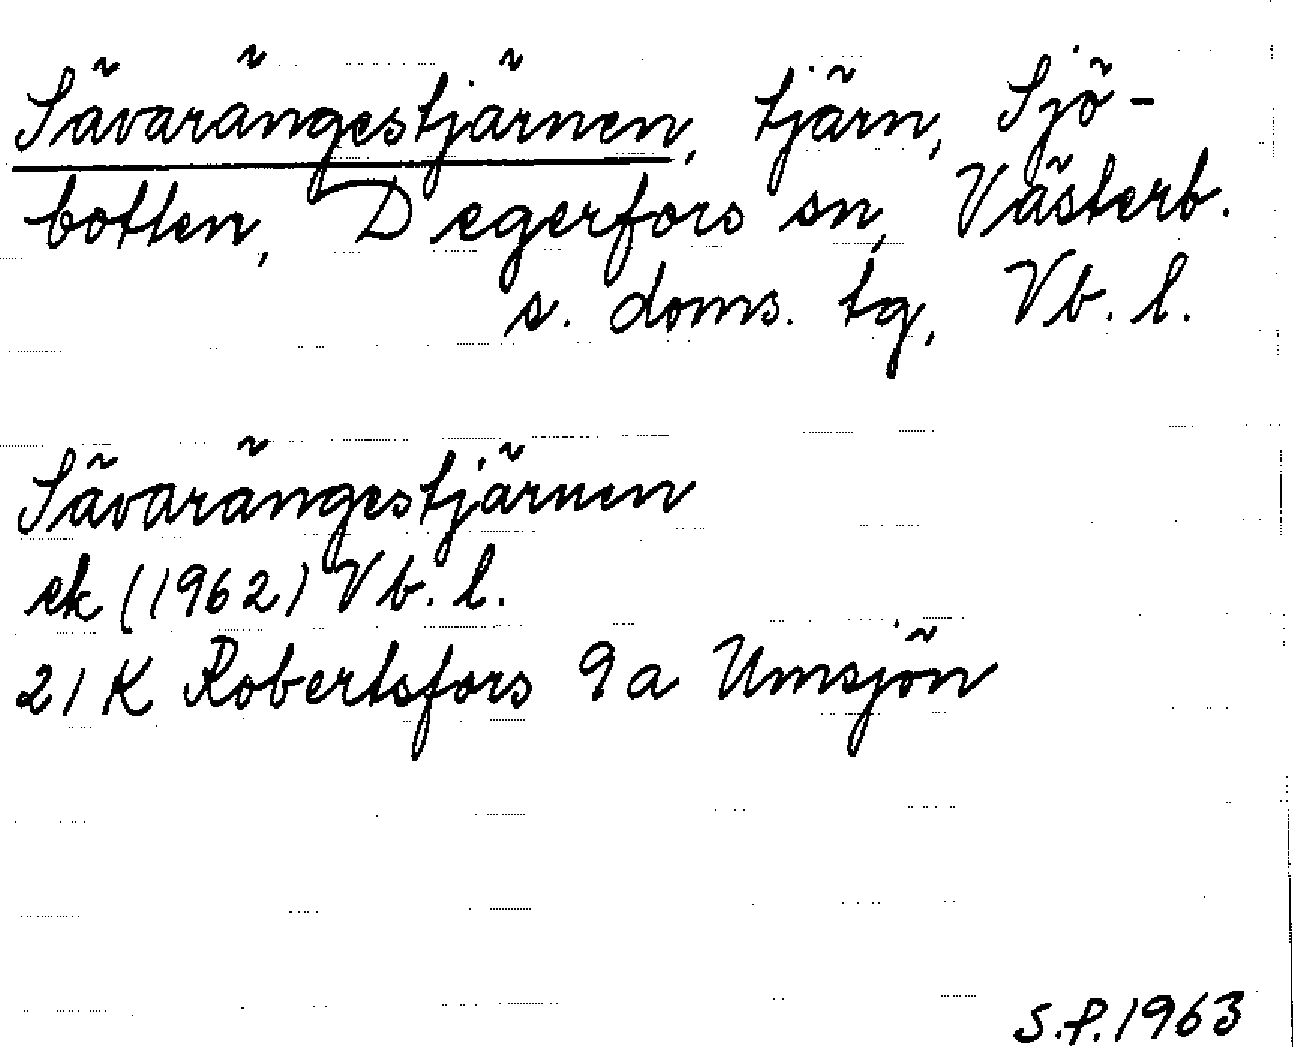 Sävarängestjärnen, tjärn, Sjö-
botten, Degerfors sn, Västerb.
s. doms. tg, Vb. l.
Sävarängestjärnen
ek (1962) Vb. l.
21 K Robertsfors 9a Umsjön
S.P. 1963